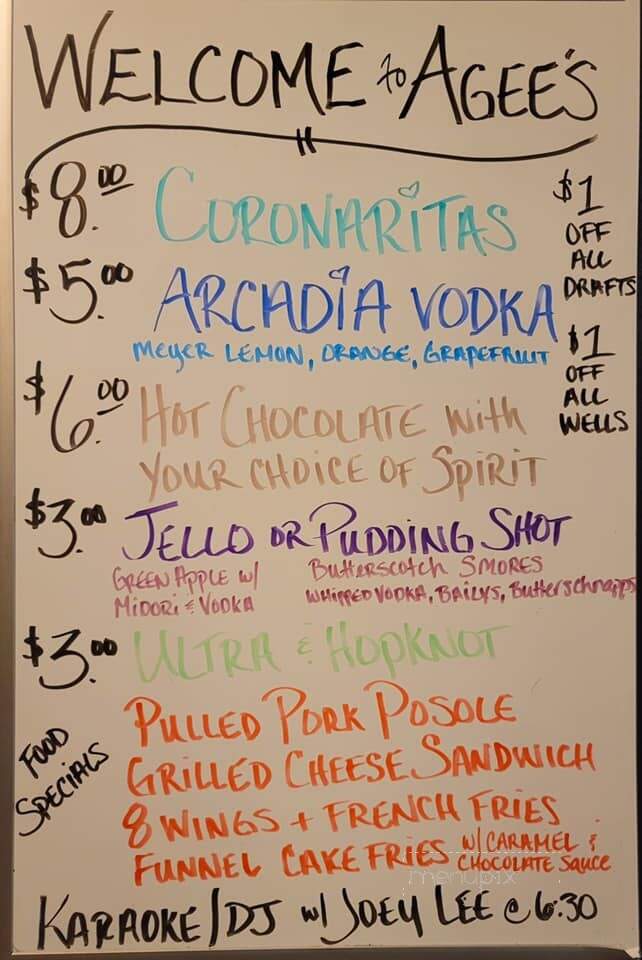 WELCOME to AGEE'S
$8.00 CORONARITAS
$1 OFF ALL DRAFTS
$5.00 ARCADIA VODKA
MEYER LEMON, ORANGE, GRAPEFRUIT
$1 OFF ALL WELLS
$6.00 HOT CHOCOLATE with
YOUR CHOICE OF SPIRIT
$3.00 JELLO OR PUDDING SHOT
GREEN APPLE w/
MIDORI & VODKA
Butterscotch SMORES
WHIPPED VODKA, BAILYS, Butterschnapps
$3.00 ULTRA & HOPKNOT
FOOD SPECIALS
PULLED PORK POSOLE
GRILLED CHEESE SANDWICH
8 WINGS + FRENCH FRIES
FUNNEL CAKE FRIES w/ CARAMEL &
CHOCOLATE Sauce
menupix
KARAOKE/DJ w/ JOEY LEE @ 6:30